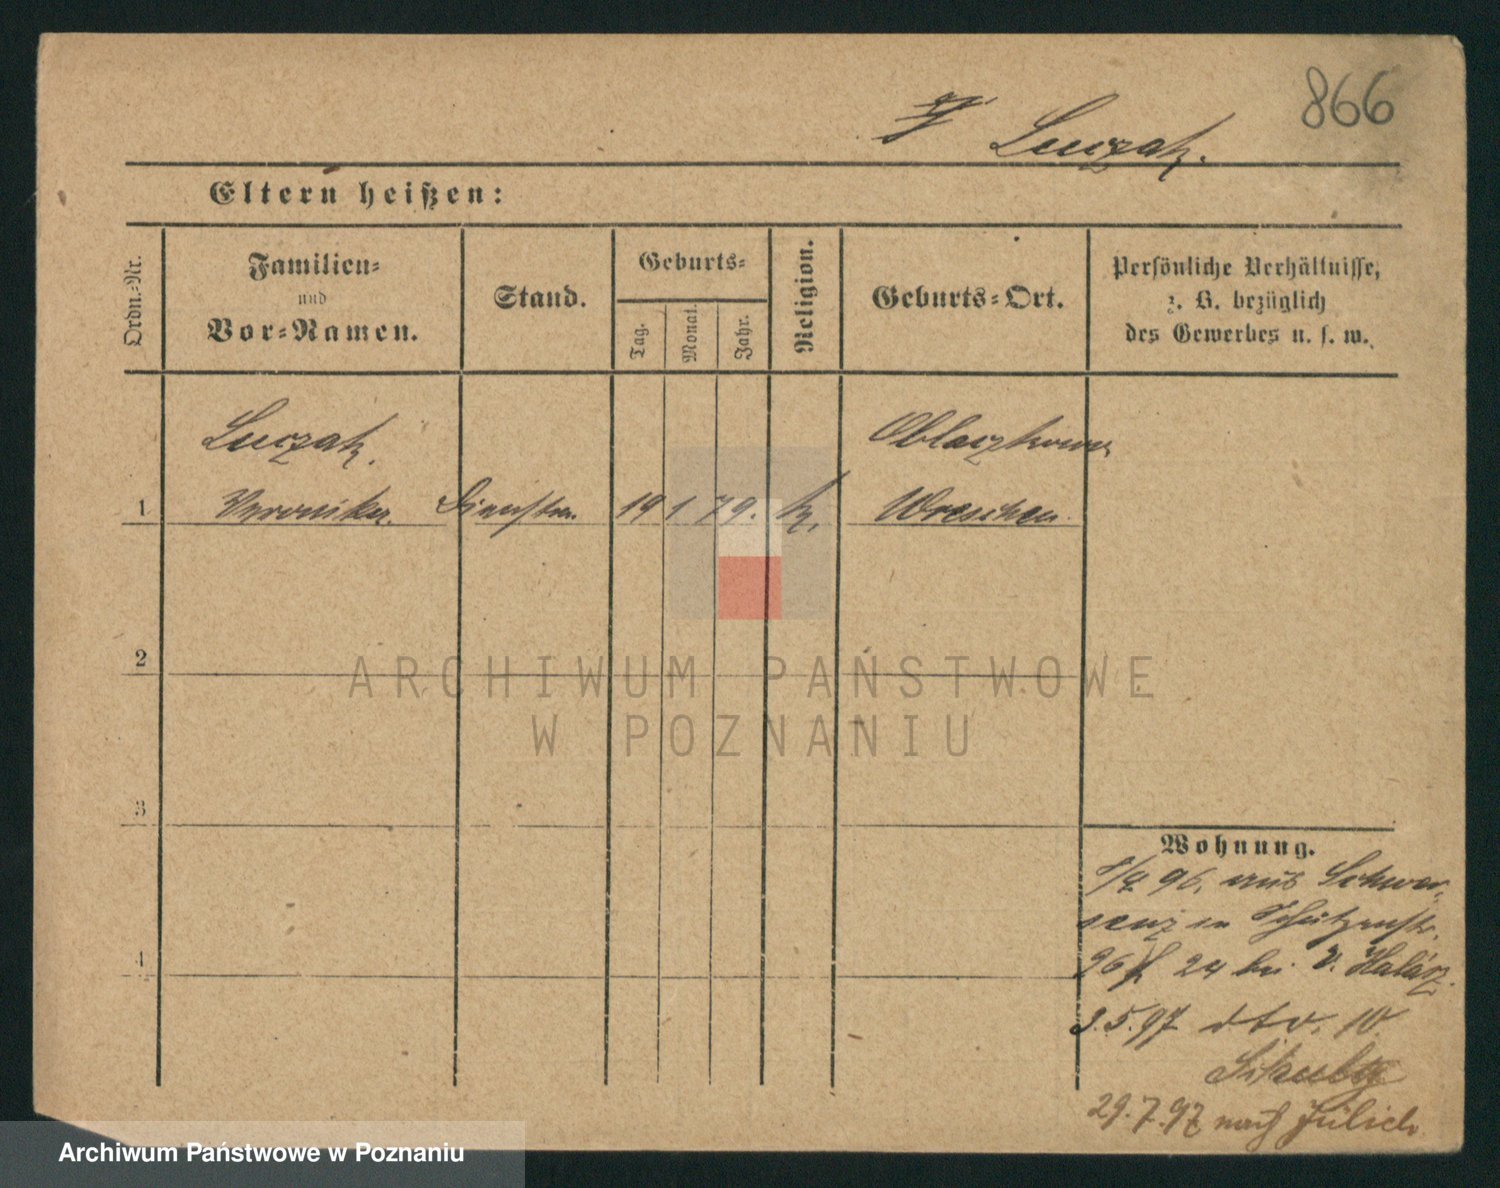 866
Luczak.
Eltern heißen:
Ordn.-Nr.
Familien-
und
Vor-Namen.
Stand.
Geburts-
Tag.
Monat.
Jahr.
Religion.
Geburts-Ort.
Persönliche Verhältnisse,
z. B. bezüglich
des Gewerbes u. s. w.
Luczak.
1 Veronika. 19 1 79. k.
Wreschen.
2
3
4
Wohnung.
1/4 96. aus Schwer-
senz in Schützenstr.
26 24 bei V.
3.5.97 dto. 10
29.7.97 nach Jülich
ARCHIWUM PAŃSTWOWE
W POZNANIU
Archiwum Państwowe w Poznaniu